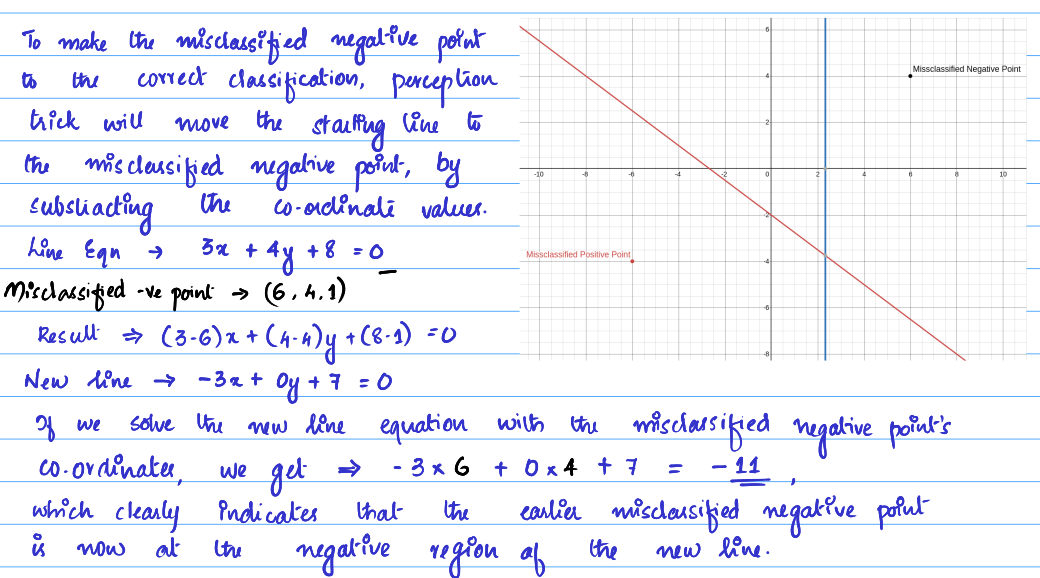 To make the misclassified negative point
to the correct classification, perception
trick will move the starting line to
the misclassified negative point, by
substracting the co-ordinate values.
Line Eqn → 3x + 4y + 8 = 0
Misclassified -ve point → (6, 4, 1)
Result ⇒ (3-6)x + (4-4)y + (8-1) = 0
New line → -3x + 0y + 7 = 0
If we solve the new line equation with the misclassified negative point's
co-ordinates, we get ⇒ -3 x 6 + 0 x 4 + 7 = -11,
which clearly indicates that the earlier misclassified negative point
is now at the negative region of the new line.
6
Missclassified Negative Point
4
2
-10 -8 -6 -4 -2 0 2 4 6 8 10
-2
Missclassified Positive Point
-4
-6
-8